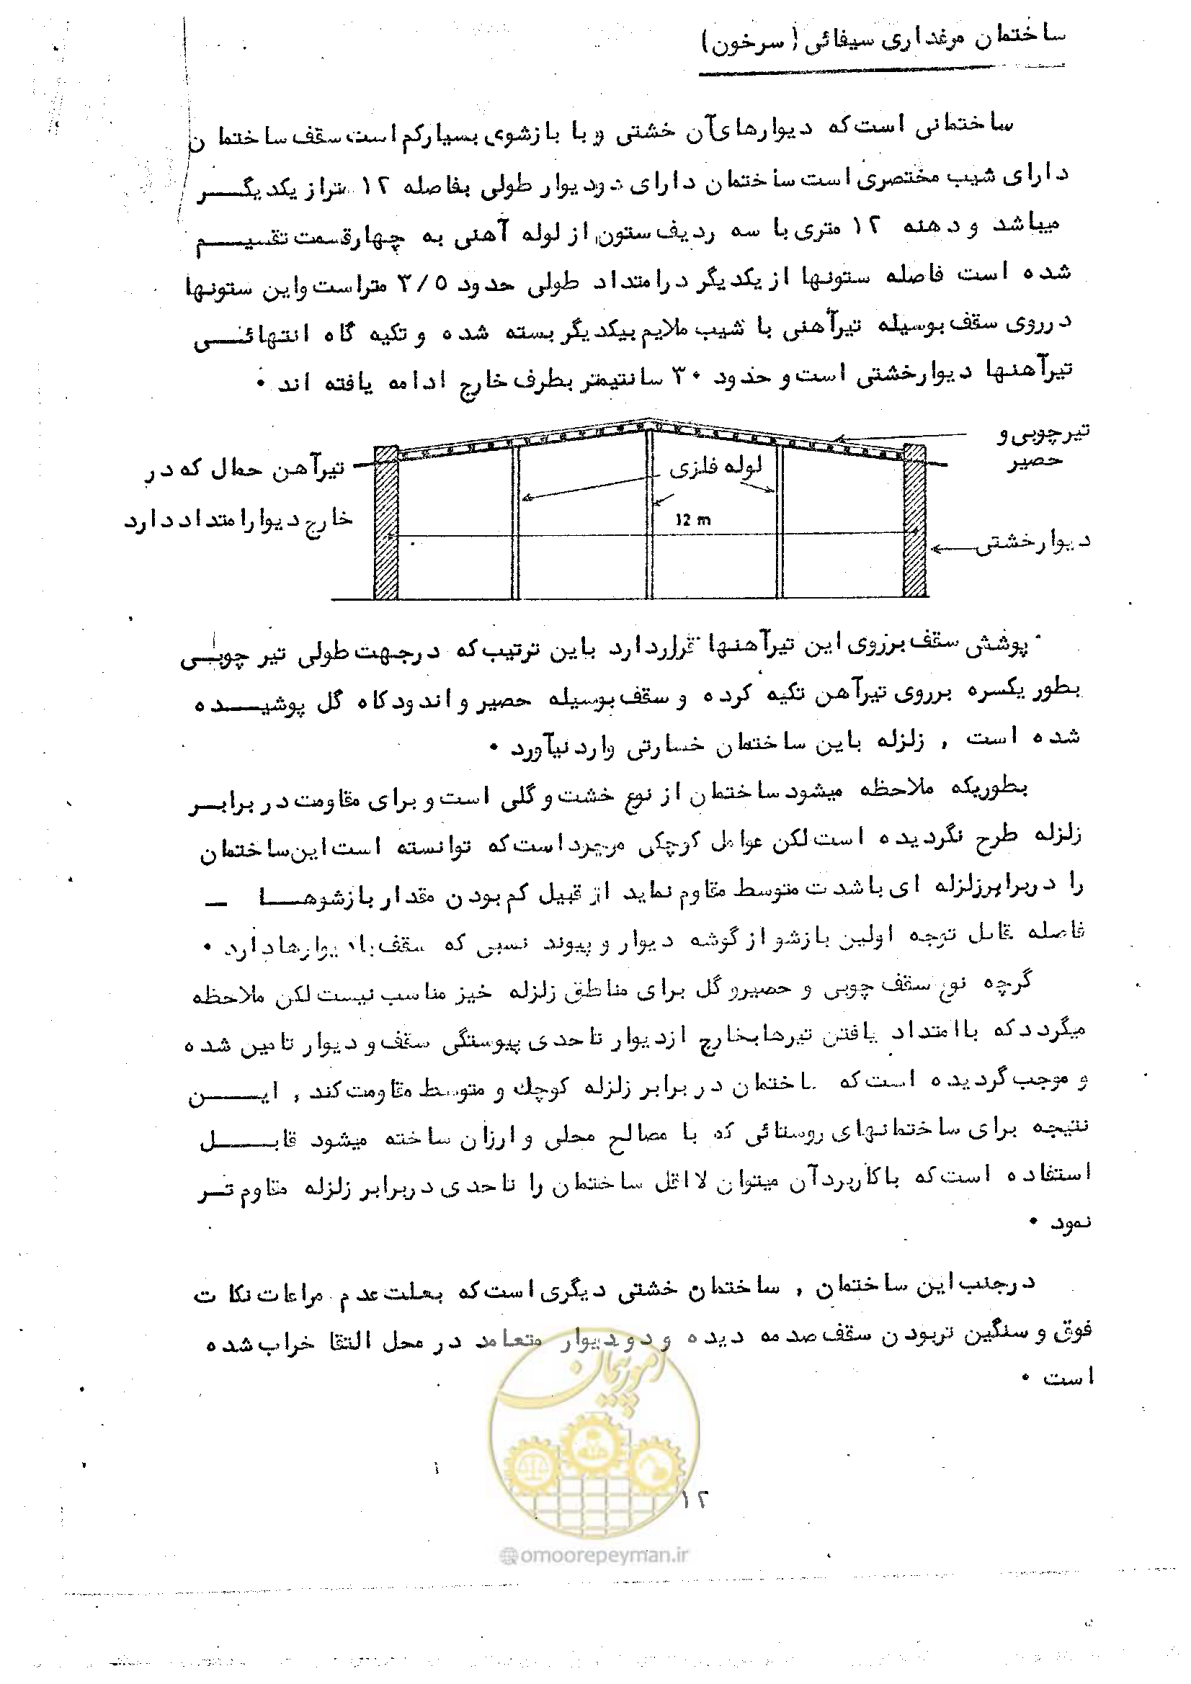 ساختمان مرغداری سیفائی (سرخون)
ساختمانی است که دیوارهای آن خشتی و با بازشوی بسیار کم است سقف ساختمان
دارای شیب مختصری است ساختمان دارای دو دیوار طولی بفاصله ۱۲ متر از یکدیگر
میباشد و دهنه ۱۲ متری با سه ردیف ستون از لوله آهنی به چهار قسمت تقسیم
شده است فاصله ستونها از یکدیگر در امتداد طولی حدود ۳/۵ متر است و این ستونها
در روی سقف بوسیله تیرآهنی با شیب ملایم بیکدیگر بسته شده و تکیه گاه انتهائی
تیرآهنها دیوار خشتی است و حدود ۳۰ سانتیمتر بطرف خارج ادامه یافته اند .
تیر چوبی و
حصیر
لوله فلزی
تیرآهن حمال که در
خارج دیوار امتداد دارد
12 m
دیوار خشتی
پوشش سقف برروی این تیرآهنها قرار دارد باین ترتیب که در جهت طولی تیر چوبی
بطور یکسره برروی تیرآهن تکیه کرده و سقف بوسیله حصیر و اندود کاه گل پوشیده
شده است , زلزله باین ساختمان خسارتی وارد نیآورد .
بطوریکه ملاحظه میشود ساختمان از نوع خشت و گلی است و برای مقاومت در برابر
زلزله طرح نگردیده است لکن عوامل کوچکی موجود است که توانسته است این ساختمان
را در برابر زلزله ای با شدت متوسط مقاوم نماید از قبیل کم بودن مقدار بازشوها –
فاصله قابل توجه اولین بازشو از گوشه دیوار و پیوند نسبی که سقف با دیوارها دارد .
گرچه نوع سقف چوبی و حصیر و گل برای مناطق زلزله خیز مناسب نیست لکن ملاحظه
میگردد که با امتداد یافتن تیرها بخارج از دیوار تا حدی پیوستگی سقف و دیوار تامین شده
و موجب گردیده است که ساختمان در برابر زلزله کوچك و متوسط مقاومت کند , این
نتیجه برای ساختمانهای روستائی که با مصالح محلی و ارزان ساخته میشود قابل
استفاده است که با کاربرد آن میتوان لااقل ساختمان را تا حدی در برابر زلزله مقاوم تر
نمود .
در جنب این ساختمان , ساختمان خشتی دیگری است که بعلت عدم مراعات نکات
فوق و سنگین تر بودن سقف صدمه دیده و دو دیوار متعامد در محل التقا خراب شده
است .
امور پیمان
۱۲
@omoorepeyman.ir